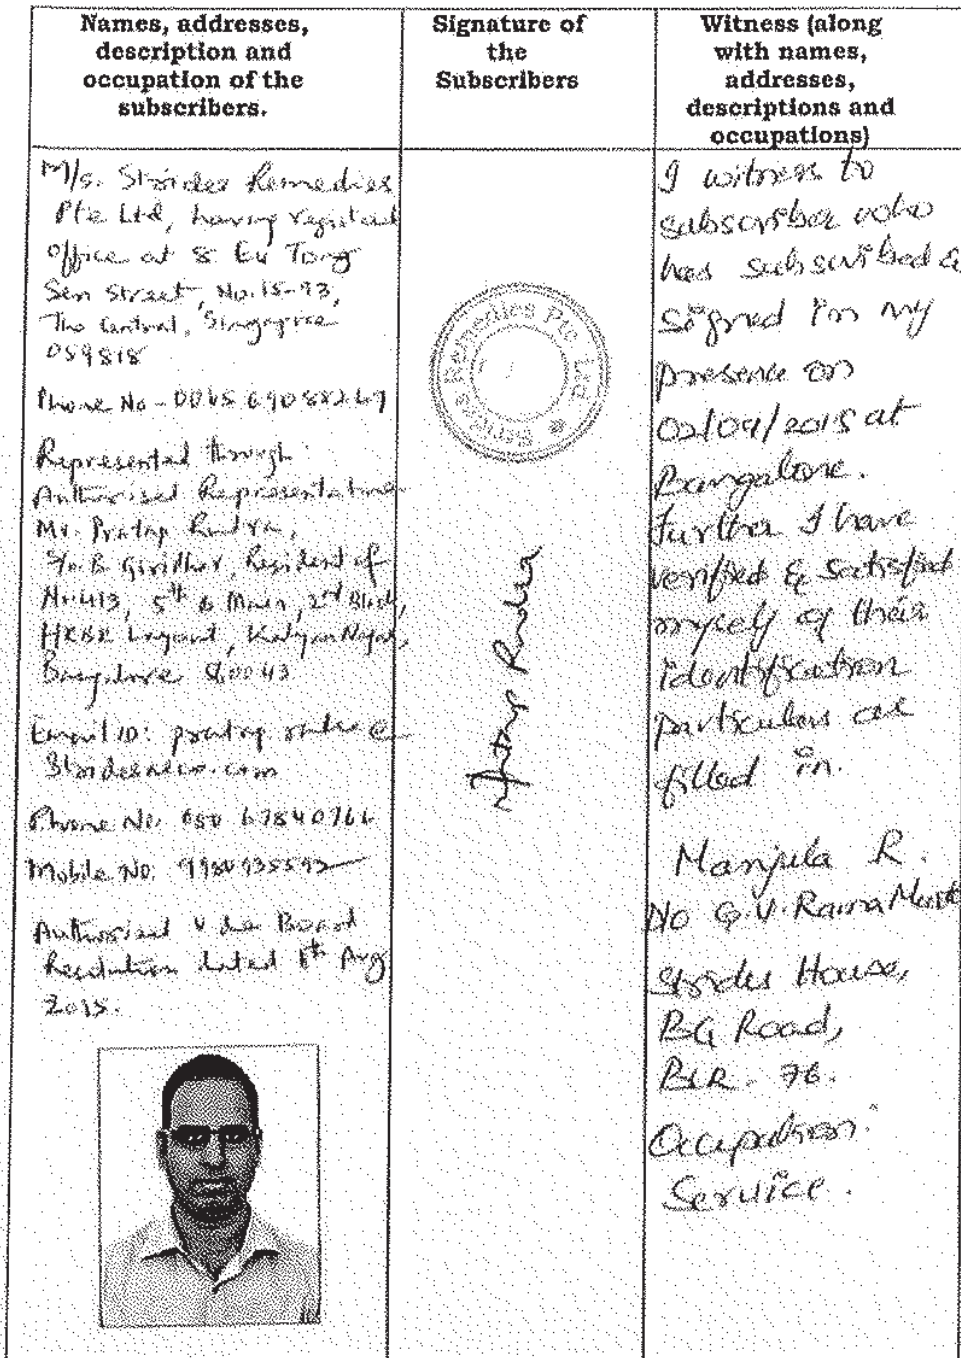 Names, addresses,
description and
occupation of the
subscribers.
Signature of
the
Subscribers
Witness (along
with names,
addresses,
descriptions and
occupations)
M/s. Strides Remedies
Pte Ltd, having registered
Office at 8 Eu Tong
Sen Street, No.15-93,
The Central, Singapore
059818
Phone No -
Represented through
Authorised Representative
Mr. Pratap Rudra,
S/o. B Giridhar, Resident of
No.413, 5th B Main, 2nd Block,
HRBR Layout, Kalyan Nagar,
Bangalore 560043
Email ID:
Phone No. 080 67840766
Mobile No: 9980935593
Authorised vide Board
Resolution dated Aug
2015.
Strides Remedies Pte Ltd
Pratap Rudra
I witness to
subscriber who
has subscribed &
signed in my
presence on
02/09/2015 at
Bangalore.
Further I have
verified & satisfied
myself of their
identification
particulars as
filled in.
Manjula R.
G.V. Rama
Strides House,
BG Road,
BLR - 76.
Occupation:
Service.